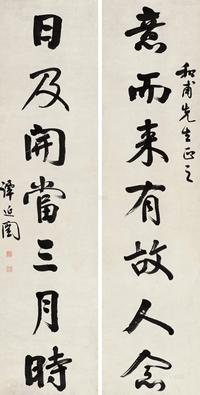 和甫先生正之
意而来有故人念
日及開當三月時
譚延闓